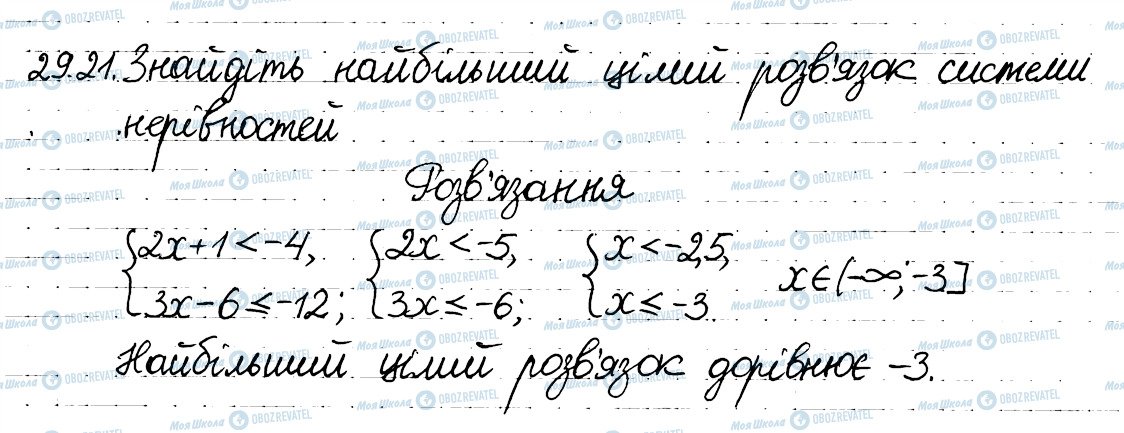 29.21. Знайдіть найбільший цілий розв'язок системи
нерівностей
Розв'язання
{2x+1<-4, {2x<-5, {x<-2,5, x∈(-∞;-3]
3x-6≤-12; 3x≤-6; x≤-3
Найбільший цілий розв'язок дорівнює -3.